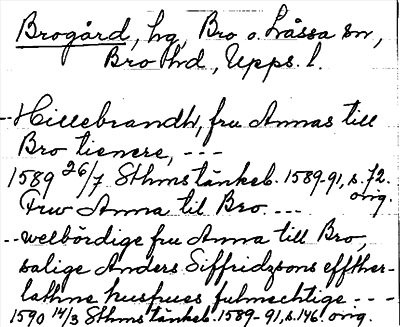 Brogård, hg, Bro o. Låssa sn,
Bro hd, Upps. l.
-- Hillebrandh, fru Annas till
Bro tienere, ---
1589 26/7 Sthms tänkeb. 1589-91, s. 72.
orig.
Frw Anna til Bro ---
-- welbördige fru Anna till Bro,
salige Anders Siffridzsons effther-
lathne husfrues fulmechtige ---
1590 14/3 Sthms tänkeb. 1589-91, s. 146. orig.